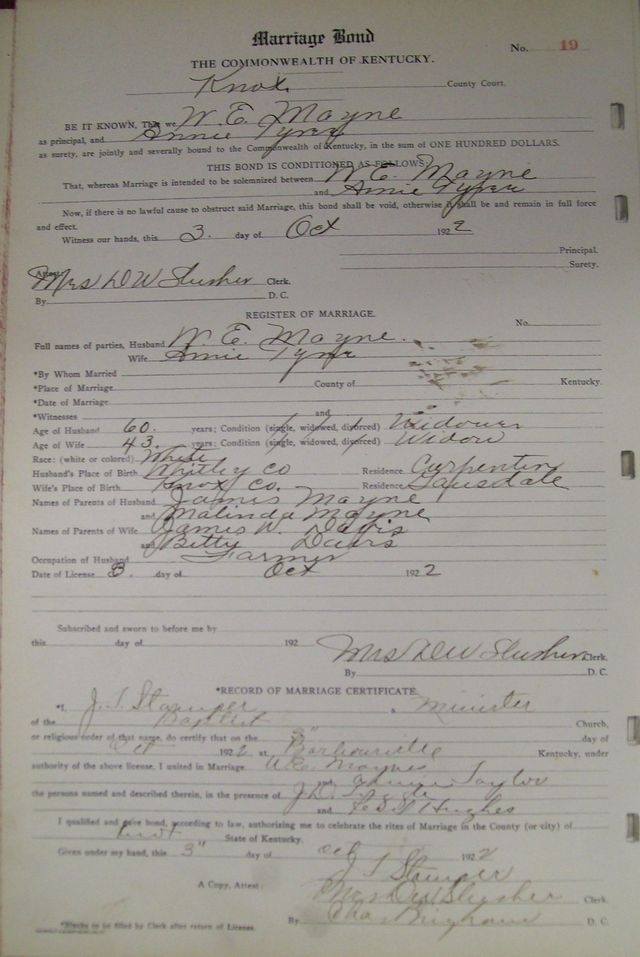 Marriage Bond
No. 19
THE COMMONWEALTH OF KENTUCKY.
Knox County Court.
BE IT KNOWN, That we W. E. Mayne
as principal, and Annie Tyner
as surety, are jointly and severally bound to the Commonwealth of Kentucky, in the sum of ONE HUNDRED DOLLARS.
THIS BOND IS CONDITIONED AS FOLLOWS:
That, whereas Marriage is intended to be solemnized between W. E. Mayne
and Annie Tyner
Now, if there is no lawful cause to obstruct said Marriage, this bond shall be void, otherwise it shall be and remain in full force
and effect.
Witness our hands, this 3. day of Oct 1922
Principal.
Surety.
Attest:
Mrs D W Slusher Clerk.
By D. C.
REGISTER OF MARRIAGE.
No.
Full names of parties, Husband W. E. Mayne.
Wife Annie Tyner
*By Whom Married
*Place of Marriage County of Kentucky.
*Date of Marriage
*Witnesses and
Age of Husband 60. years; Condition (single, widowed, divorced) Widower
Age of Wife 43. years; Condition (single, widowed, divorced) Widow
Race: (white or colored) White
Husband's Place of Birth Whitley Co Residence Carpenter
Wife's Place of Birth Knox Co. Residence
Names of Parents of Husband James Mayne
and Malinda Mayne
Names of Parents of Wife James W. Davis
and Betty Davis
Occupation of Husband Farmer
Date of License 3. day of Oct 1922
Subscribed and sworn to before me by
this day of 192
Mrs D W Slusher Clerk.
By D. C.
*RECORD OF MARRIAGE CERTIFICATE.
*I, J. T. Stamper a Minister
of the Baptist Church,
or religious order of that name, do certify that on the 3" day of
Oct 1922 at Barbourville Kentucky, under
authority of the above license, I united in Marriage W. E. Maynes
and Taylor
the persons named and described therein, in the presence of J. D.
and Hughes
I qualified and gave bond, according to law, authorizing me to celebrate the rites of Marriage in the County (or city) of
Knox State of Kentucky.
Given under my hand, this 3" day of Oct 1922
J. T. Stamper
A Copy, Attest: Mrs D W Slusher Clerk.
By Chas Bingham D. C.
*Blanks to be filled by Clerk after return of License.